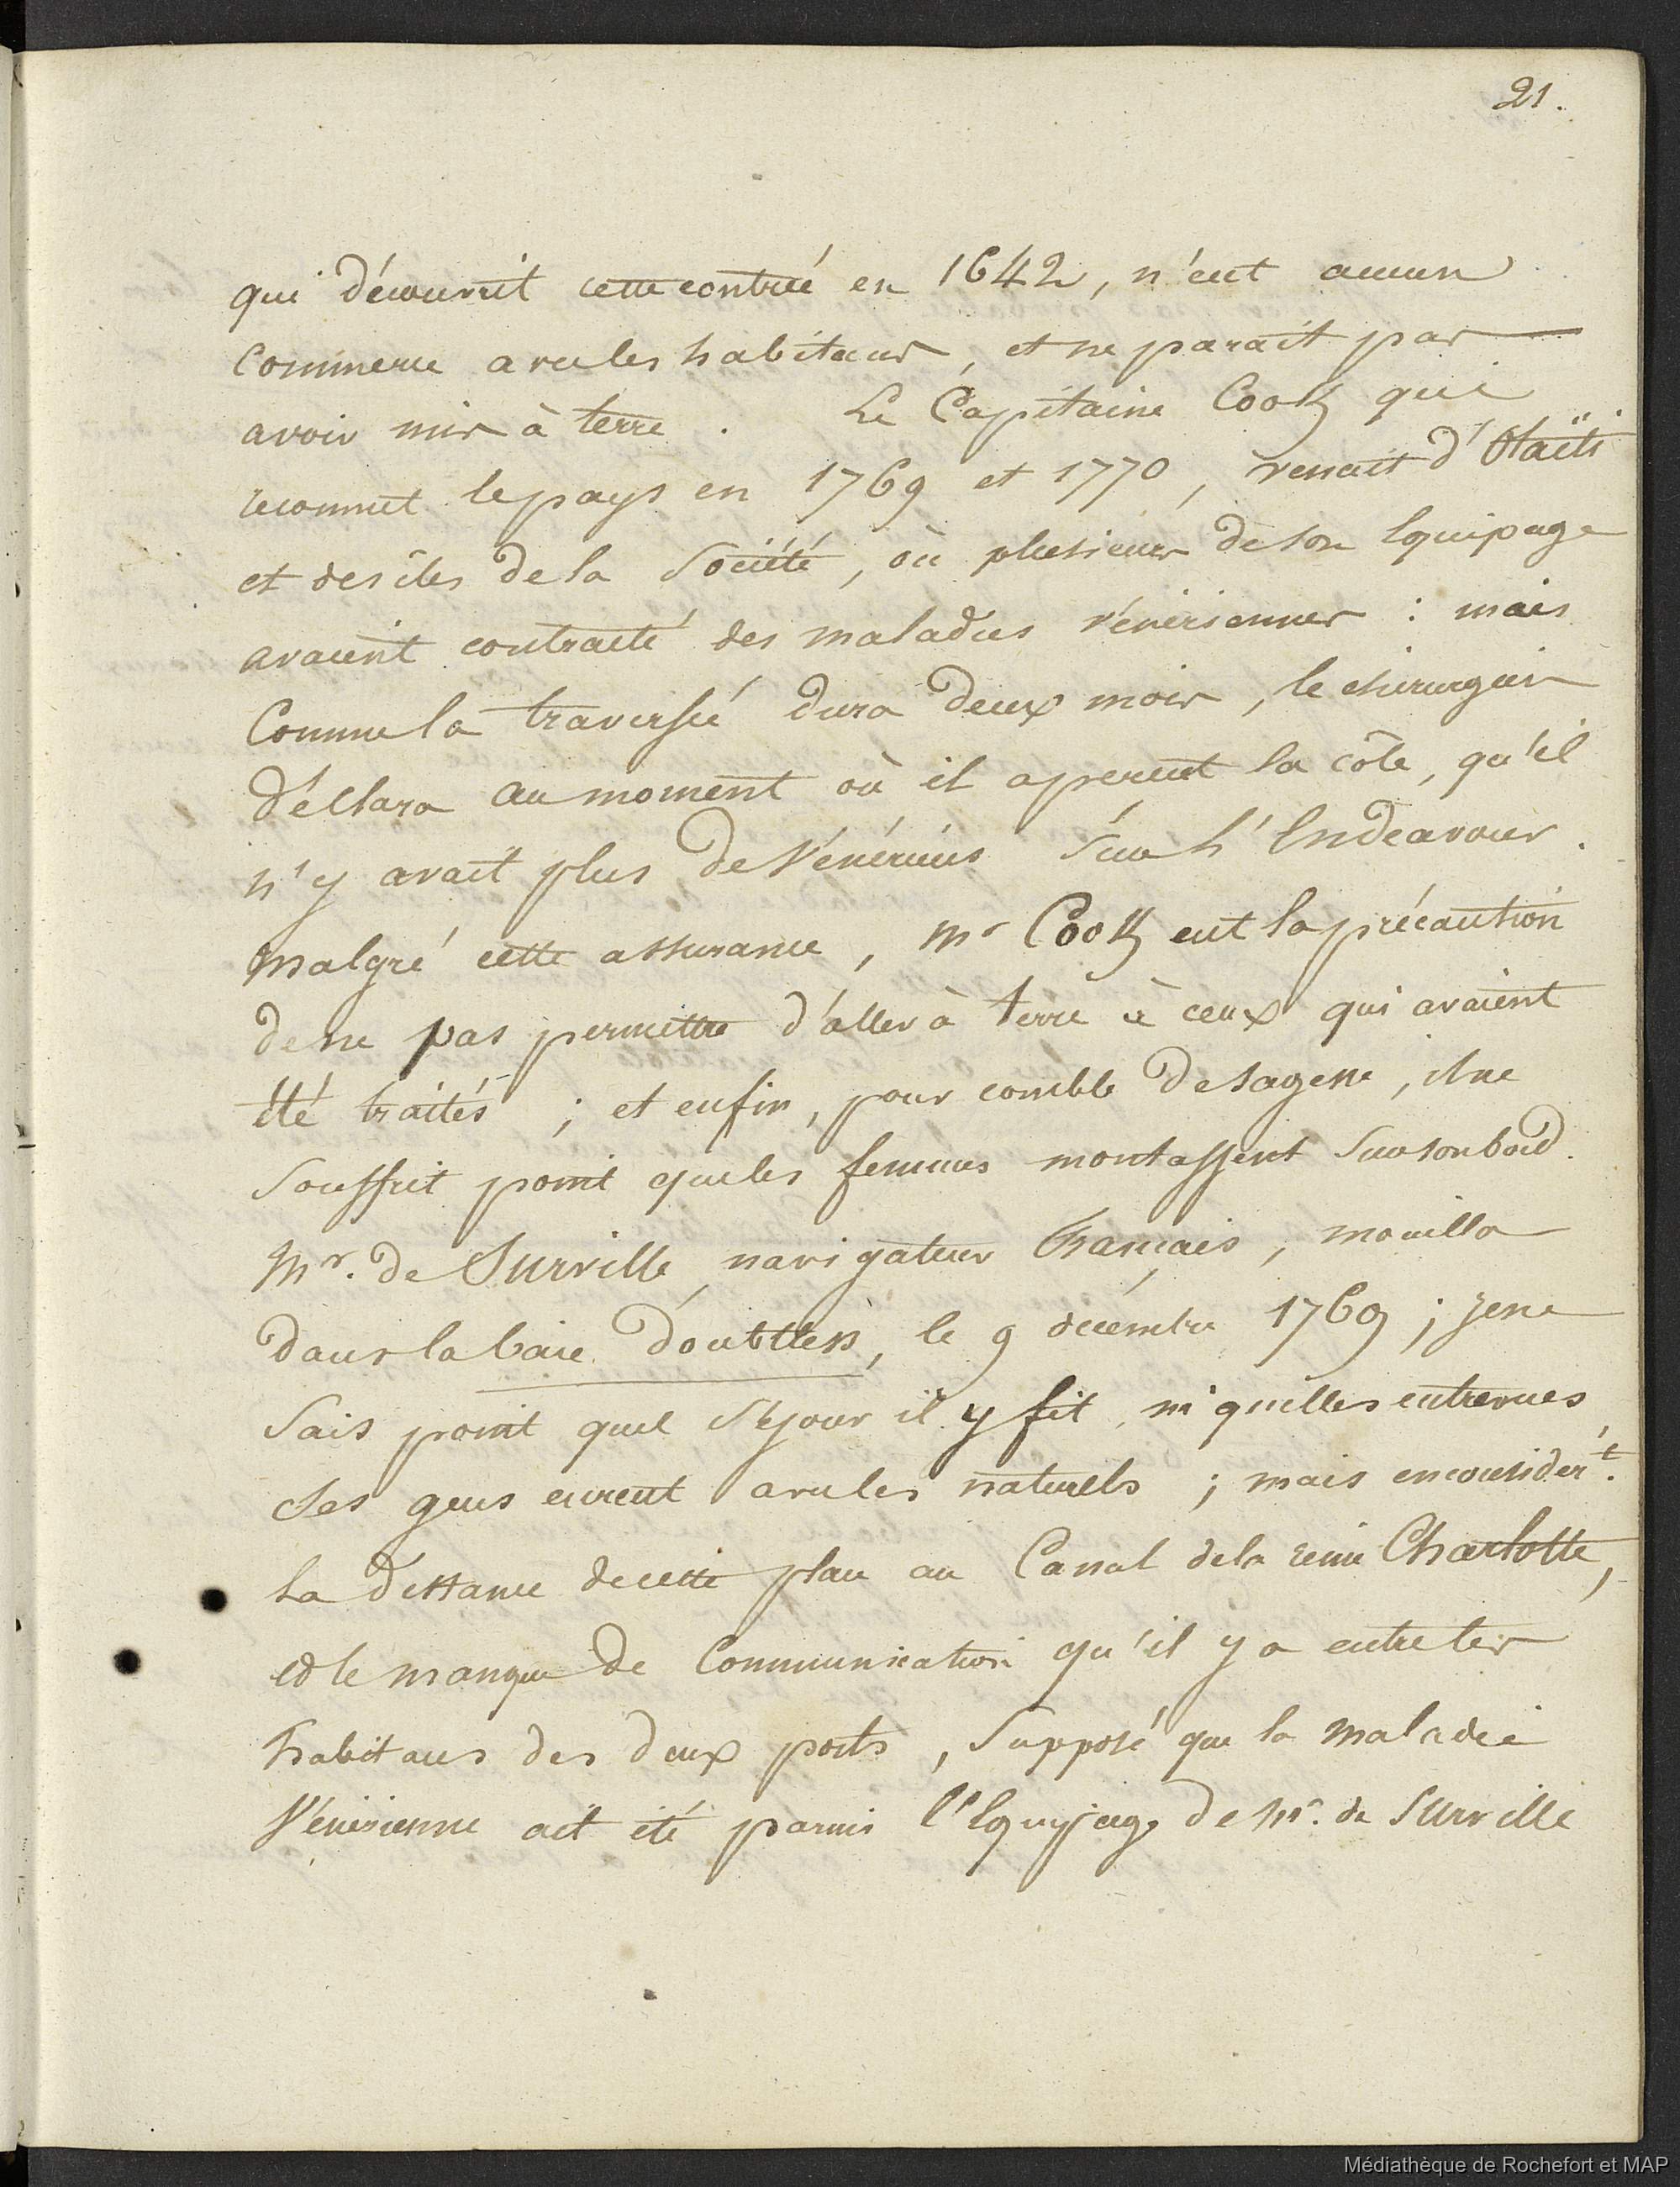 21.
qui découvrit cette contrée en 1642, n'eut aucun
commerce avec les habitans, et ne parait pas
avoir mis à terre. Le Capitaine Cook qui
reconnut le pays en 1769 et 1770, venait d'Otaïti
et des îles de la Société, où plusieurs de son Equipage
avaient contracté des maladies vénériennes : mais
Comme la traversée dura deux mois, le chirurgien
déclara au moment où il aperçut la côte, qu'il
n'y avait plus de Vénériens Sur L'Endeavour.
malgré cette assurance, Mr Cook eut la précaution
de ne pas permettre d'aller à terre à ceux qui avaient
été traités ; et enfin, pour comble de sagesse, il ne
Souffrit point que les femmes montassent Sur son bord.
Mr. de Surville, navigateur Français, mouilla
dans la baie Doubtless, le 9 décembre 1769 ; je ne
Sais point quel Séjour il y fit, ni quelles entrevues
Ses gens eurent avec les naturels ; mais en considért.
La distance de cette place au Canal de la reine Charlotte,
et le manque de Communication qu'il y a entre les
habitans des deux ports, Supposé que la maladie
Vénérienne ait été parmi l'Equipage de Mr. de Surville
Médiathèque de Rochefort et MAP